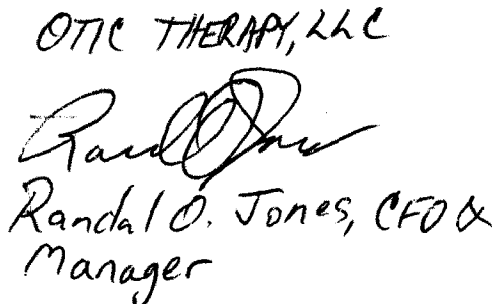 OTIC THERAPY, LLC
Randal O. Jones
Randal O. Jones, CFO &
Manager